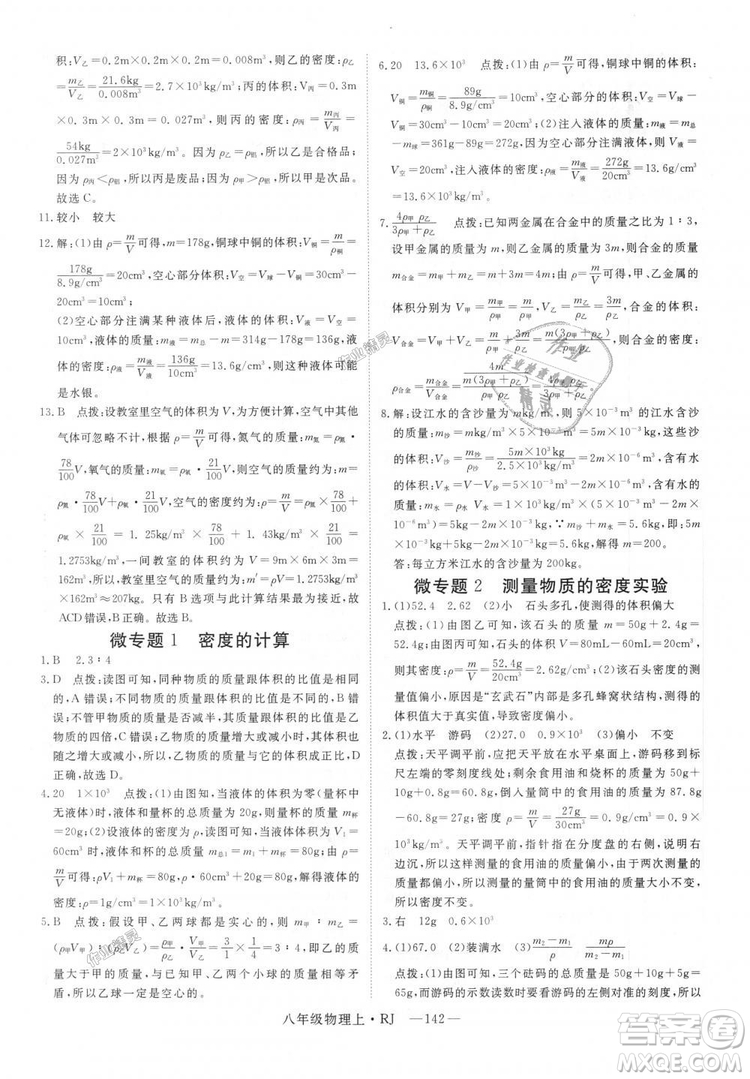 积:V乙=0.2m×0.2m×0.2m=0.008m³,则乙的密度:ρ乙
=m乙/V乙=21.6kg/0.008m³=2.7×10³kg/m³;丙的体积:V丙=0.3m
×0.3m×0.3m=0.027m³,则丙的密度:ρ丙=m丙/V丙=
54kg/0.027m³=2×10³kg/m³;所以乙是实心的,
因为ρ丙<ρ乙,所以丙是空心的,因为ρ甲>ρ乙,所以甲掺杂了。
故选C。
11.较小 较大
12.解:(1)由ρ=m/V可得,m=178g,铜球中铜的体积:V铜=
178g/8.9g/cm³=20cm³,空心部分体积:V空=V球-V铜=30cm³-
20cm³=10cm³;
(2)空心部分注满某种液体后,液体的体积:V液=V空
=10cm³,液体的质量:m液=m总-m=314g-178g=136g,
液体的密度:ρ液=m液/V液=136g/10cm³=13.6g/cm³,这种液体可能
是水银。
13.B 点拨:设教室里空气的体积为V,健康环境下,空气中其他
气体可忽略不计,由ρ=m/V可得,氮气的质量:m氮=ρ氮×
78/100V,氧气的质量:m氧=ρ氧×21/100V,则空气的质量:m空=ρ氮
×78/100V+ρ氧×21/100V;空气的密度:ρ空=m空/V=ρ氮×78/100+ρ氧
×21/100=1.25kg/m³×78/100+1.43kg/m³×21/100=
1.2753kg/m³,一间教室的体积V=9m×6m×3m=
162m³,一间教室内空气的质量:m空=ρ空V=1.2753kg/m³
×162m³≈206kg,只有B选项与此结果最接近,所以
ACD错误,B正确。故选B。
微专题1 密度的计算
1.B 2.3∶4
3.D 点拨:读图可知,同种物质的质量跟体积的比值是相同
的,A错误;不同物质的质量跟体积的比值是不同的,B错
误;不管甲物质的质量是否减半,其质量跟体积的比值都是乙
物质的四倍,C错误;乙物质的质量增大或减小时,其体积也
随之增大或减小,所以,它的质量与它的体积成正比,D
正确,故选D。
4.20 1×10³ 点拨:(1)由图知,当液体体积为零(量杯中
无液体)时,液体和杯的总质量为20g,所以量杯质量m杯
=20g;(2)设液体的密度为ρ,读图可知,当液体体积为V₁=
60cm³时,液体和杯的总质量m总1=80g,由ρ=m/V和题
意可得:m液1+m杯=m总1,即:ρV₁+m杯=m总1,代入数
据可得:ρ×60cm³+20g=80g,解得:液体密度ρ=1g/cm³=
1×10³kg/m³。
5.B 点拨:假设甲、乙两球都是实心的,则m甲∶m乙=
(ρ甲V甲)∶(ρ乙V乙)=3∶4,而甲、乙两个球的实际质
量大于甲与乙的比值,说明甲、乙两个小球的质
量大于甲与乙的比值,说明甲、乙两个小球的质
量,所以乙球一定是空心的。
6.20 13.6×10³ 点拨:(1)由ρ=m/V可得,铜球中铜的体积:
V铜=m铜/ρ铜=89g/8.9g/cm³=10cm³,空心部分的体积:V空=V球-
V铜=30cm³-10cm³=20cm³;(2)注入液体的质量:m液=m总
-m球=361g-89g=272g,液体的密度:ρ液=m液/V空=272g/20cm³=13.6g/cm³
=13.6×10³kg/m³。
7.4ρ甲ρ乙/3ρ甲+ρ乙 点拨:已知两金属在合金中的质量为1∶3,
设甲金属的质量为m,则乙金属的质量为3m,合金的质量
m合金=4m,由ρ=m/V可得,合金中甲、乙两种金属的
体积分别为V甲=m/ρ甲、V乙=3m/ρ乙,合金的体积:
V合金=V甲+V乙=m/ρ甲+3m/ρ乙=m(3ρ甲+ρ乙)/ρ甲ρ乙,合金的密度:
ρ合金=m合金/V合金=4m/m(3ρ甲+ρ乙)/ρ甲ρ乙=4ρ甲ρ乙/3ρ甲+ρ乙。
8.解:设江水的含沙量为m沙,则所取的江水含沙
质量:m沙=5m×10⁻³m³,由ρ=m/V可得,含有沙的
体积:V沙=m沙/ρ沙=5m×10⁻³m³/2.5×10³kg/m³=2m×10⁻⁶m³,含有水的
质量:m水=ρ水V水=1×10³kg/m³×(5×10⁻³m³-2m×
10⁻⁶m³)=5kg-2m×10⁻³m³,因为m沙+m水=5.6kg,即:5m×
10⁻³m³+5kg-2m×10⁻³m³=5.6kg,解得:m=200kg/m³。
答:每立方米江水的含沙量为200kg。
微专题2 测量物质的密度实验
1.(1)52.4 2.62 (2)小 石头多孔,使测得的体积偏大
点拨:(1)由图甲可知,石头的质量m=50g+2.4g=
52.4g;由图丙可知,石头的体积V=80mL-60mL=20mL
=20cm³;(2)由ρ=m/V=52.4g/20cm³=2.62g/cm³,该石头密度的测
量值偏小,原因是“玄武石”是多孔蜂窝状结构,测得的
体积值大于真实值,导致密度值偏小。
2.(1)水平 游码 (2)27.0 0.9×10³ (3)偏小 不变
点拨:天平调平前,应把天平放在水平桌面上,游码移到横梁标
尺左端的零刻度线处;剩余食用油和烧杯的质量为50g+
10g+0.8g=60.8g,倒入量筒内食用油的质量为87.8g
-60.8g=27g,密度ρ=m/V=27g/30cm³=0.9g/cm³=0.9×
10³kg/m³。天平调平前,指针指在分度盘的右侧,说明右
边沉,所以这样测量的食用油的质量偏小,
所以测量的食用油的质量偏小,测量的量筒中食用油的体积不变,
所以质量偏小。
3.右 12g 0.6×10³
4.(1)67.0 (2)装满水 (3)m₂-m₁ mρ/m₂-m₁
点拨:(1)由图可知,三个砝码的质量为50g+10g+5g,
游码的示数读数时要以游码左侧对应的刻度值为准,由
八年级物理上·RJ —142—
作业精灵
答案圈
MXQE.COM